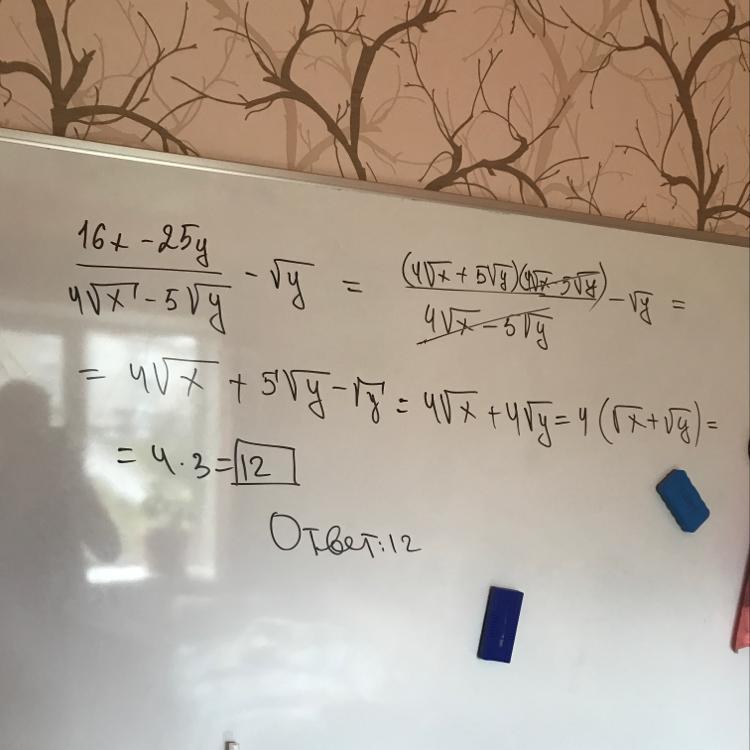 (16x - 25y)/(4√x - 5√y) - √y = ((4√x + 5√y)(4√x - 5√y))/(4√x - 5√y) - √y =
= 4√x + 5√y - √y = 4√x + 4√y = 4(√x + √y) =
= 4 · 3 = 12
Ответ: 12